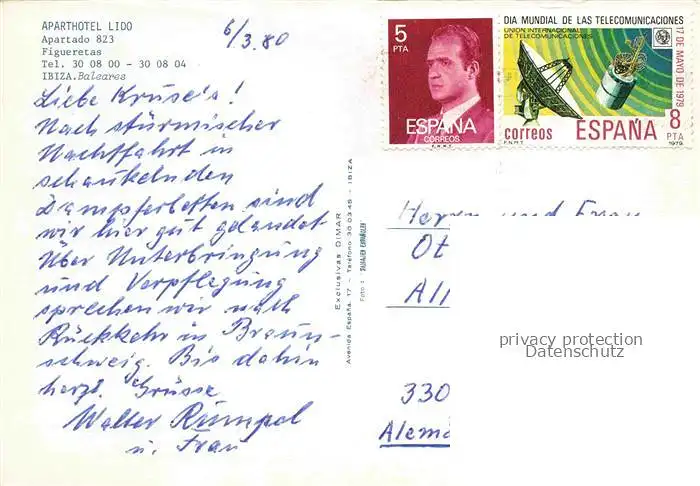 APARTHOTEL LIDO
Apartado 823
Figueretas
Tel. 30 08 00 - 30 08 04
IBIZA. Baleares
6/3.80
Liebe Kruse's!
Nach stürmischer
Nachtfahrt in
schaukelnden
Dampferbetten sind
wir hier gut gelandet
Über Unterbringung
und Verpflegung
sprechen wir nach
Rückkehr in Braun-
schweig. Bis dahin
herzl. Grüsse
Walter Rümpel
u. Frau
Exclusivas DIMAR
Avenida España, 17 - Teléfono 30 03 45 - IBIZA
5
PTA
ESPAÑA
CORREOS
F.N.M.T.
DIA MUNDIAL DE LAS TELECOMUNICACIONES
UNION INTERNACIONAL
DE TELECOMUNICACIONES
17 DE MAYO DE 1979
correos
ESPAÑA
8
PTA
F.N.M.T.
1979
Herrn und Frau
Ot
All
330
Alem
privacy protection
Datenschutz